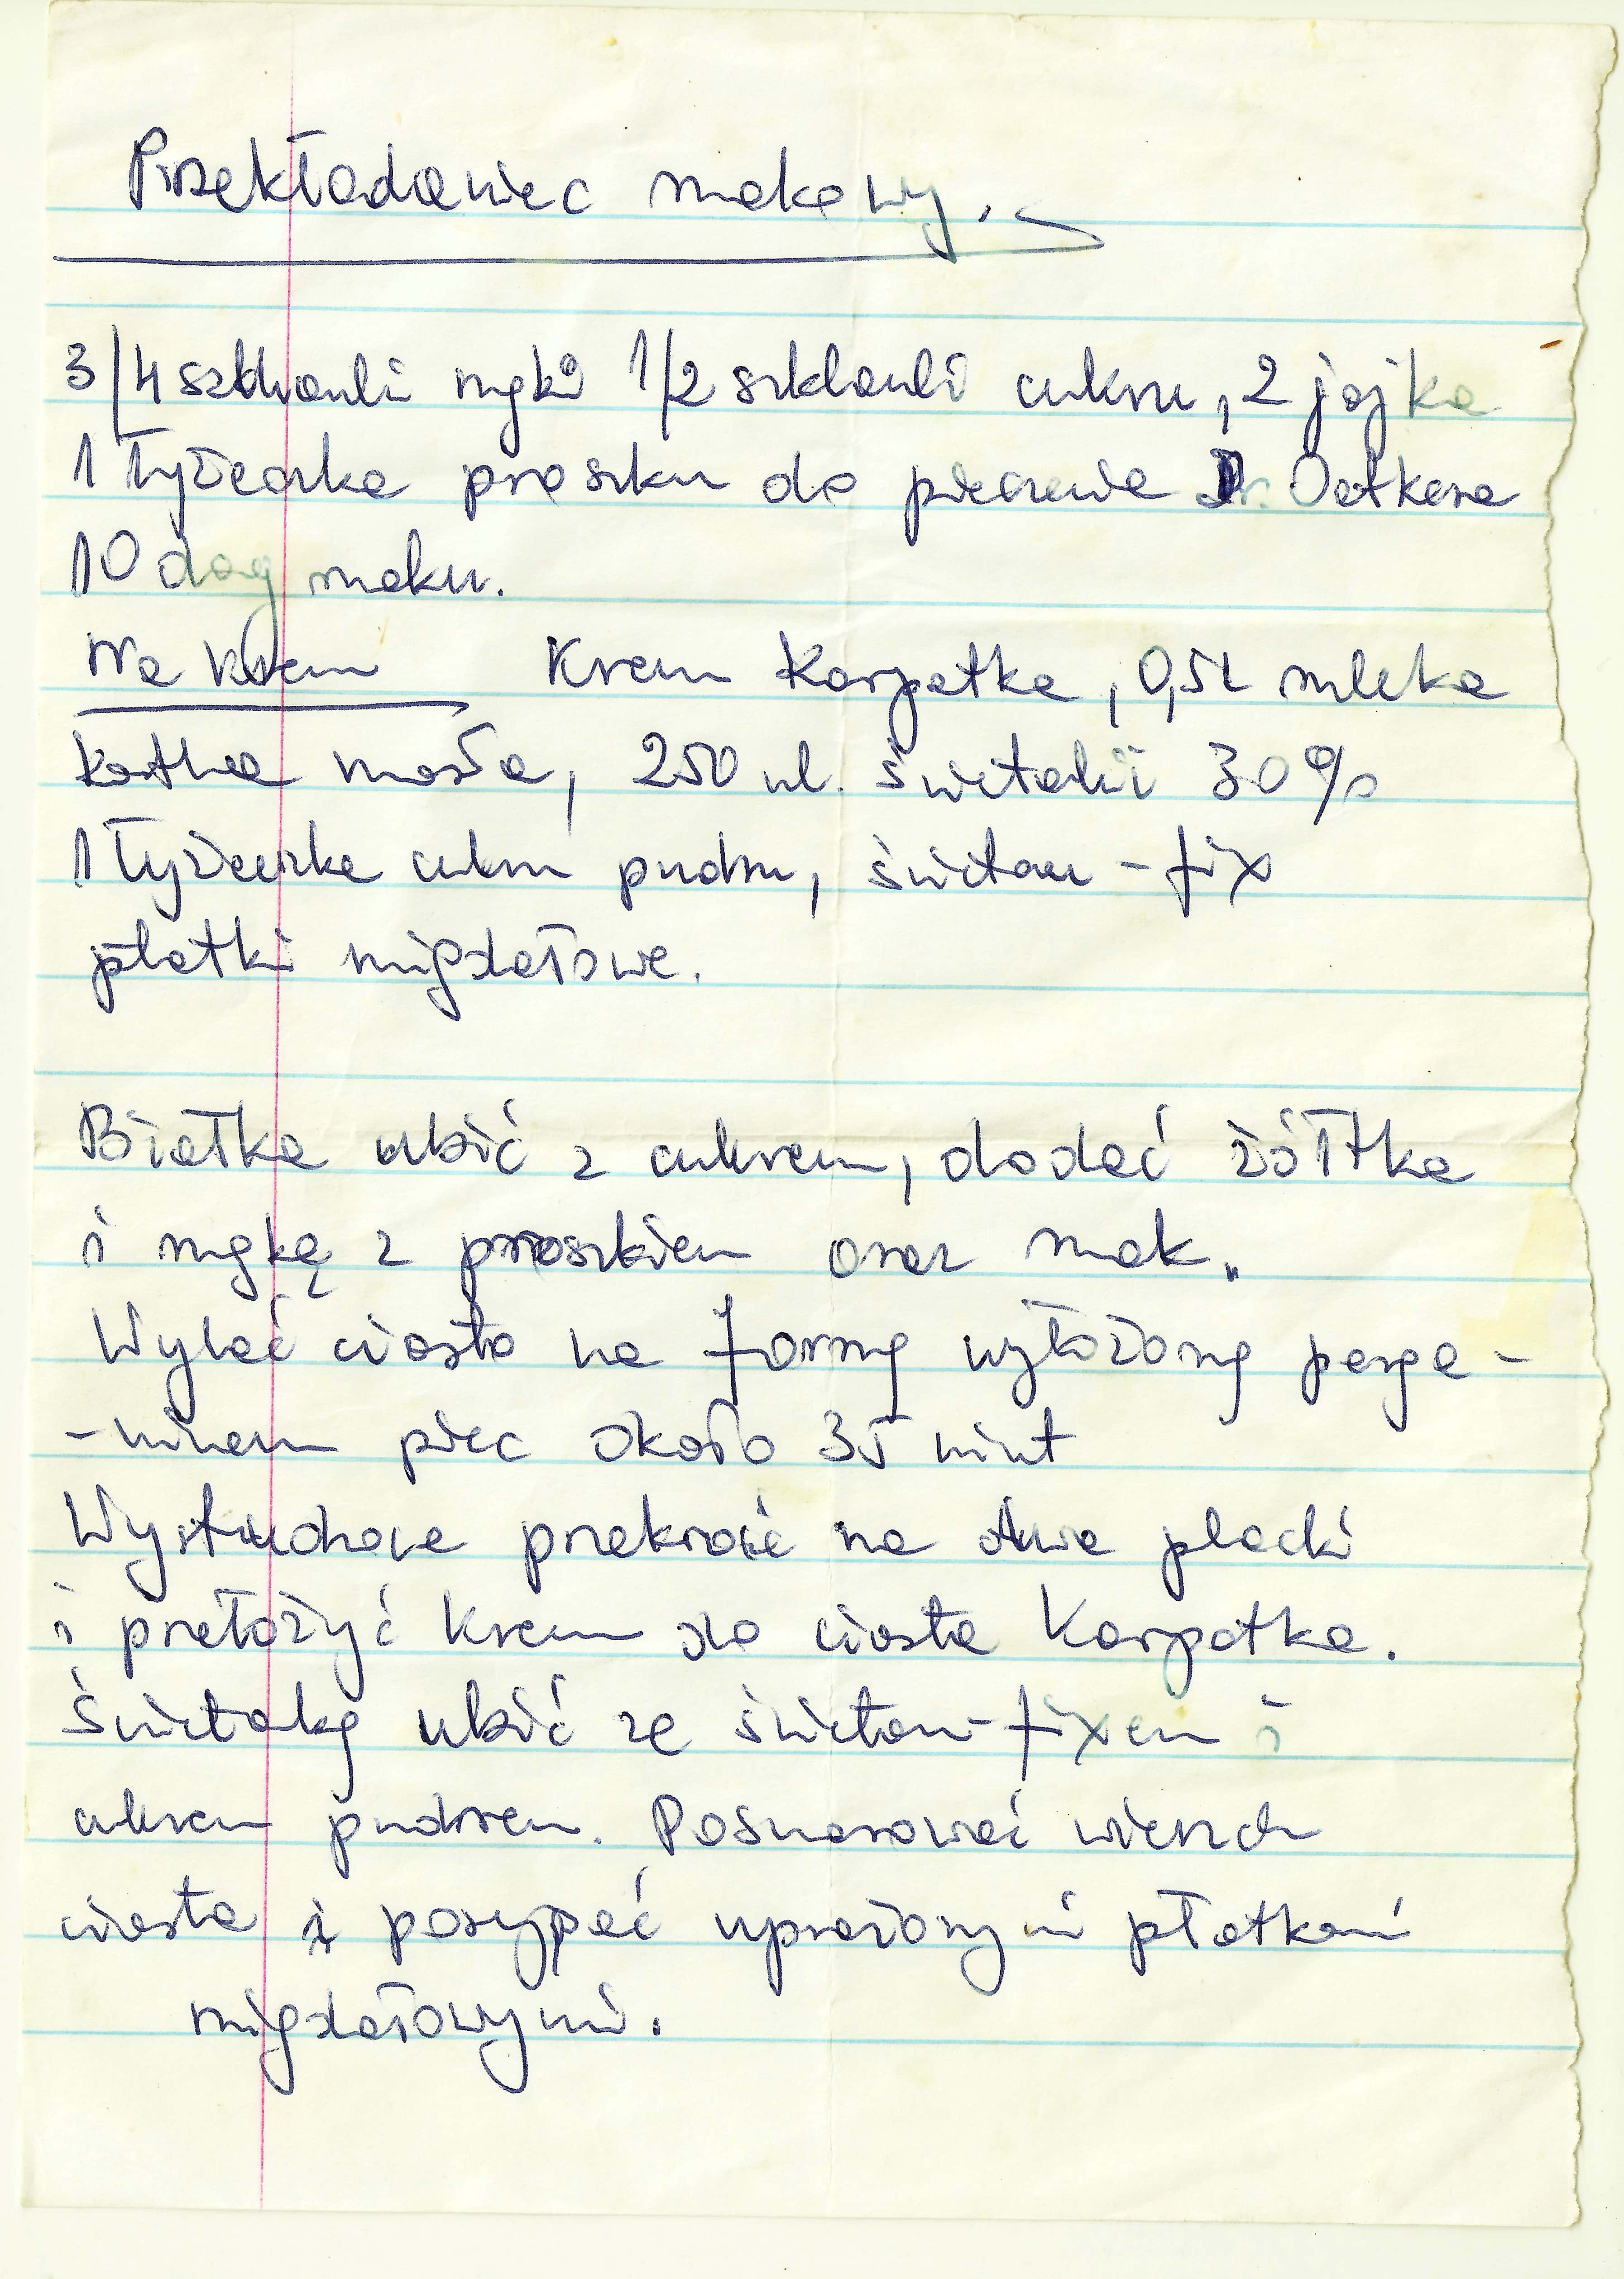 Przekładaniec makowy.
3/4 szklanki mąki 1/2 szklanki cukru, 2 jajka
1 łyżeczka proszku do pieczenia Dr. Oetkera
10 dag maku.
Na krem Krem Karpatka, 0,5l mleka
kostka masła, 250 ml. śmietanki 30%
1 łyżeczka cukru pudru, śmietan-fix
płatki migdałowe.
Białka ubić z cukrem, dodać żółtka
i mąkę z proszkiem oraz mak.
Wylać ciasto na formę wyłożoną perga-
-minem piec około 35 mint
Wystudzone przekroić na dwa placki
i przełożyć Krem do ciasta Karpatka.
Śmietankę ubić ze śmietan-fixem i
cukrem pudrem. Posmarować wierzch
ciasta i posypać uprażonymi płatkami
migdałowymi.